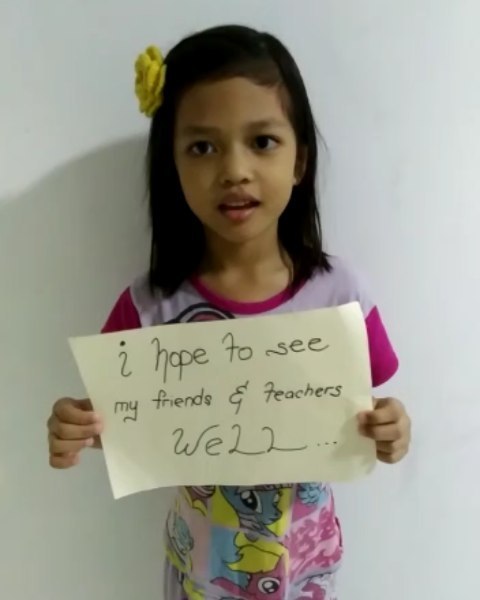 i hope to see
my friends & teachers
WeLL...